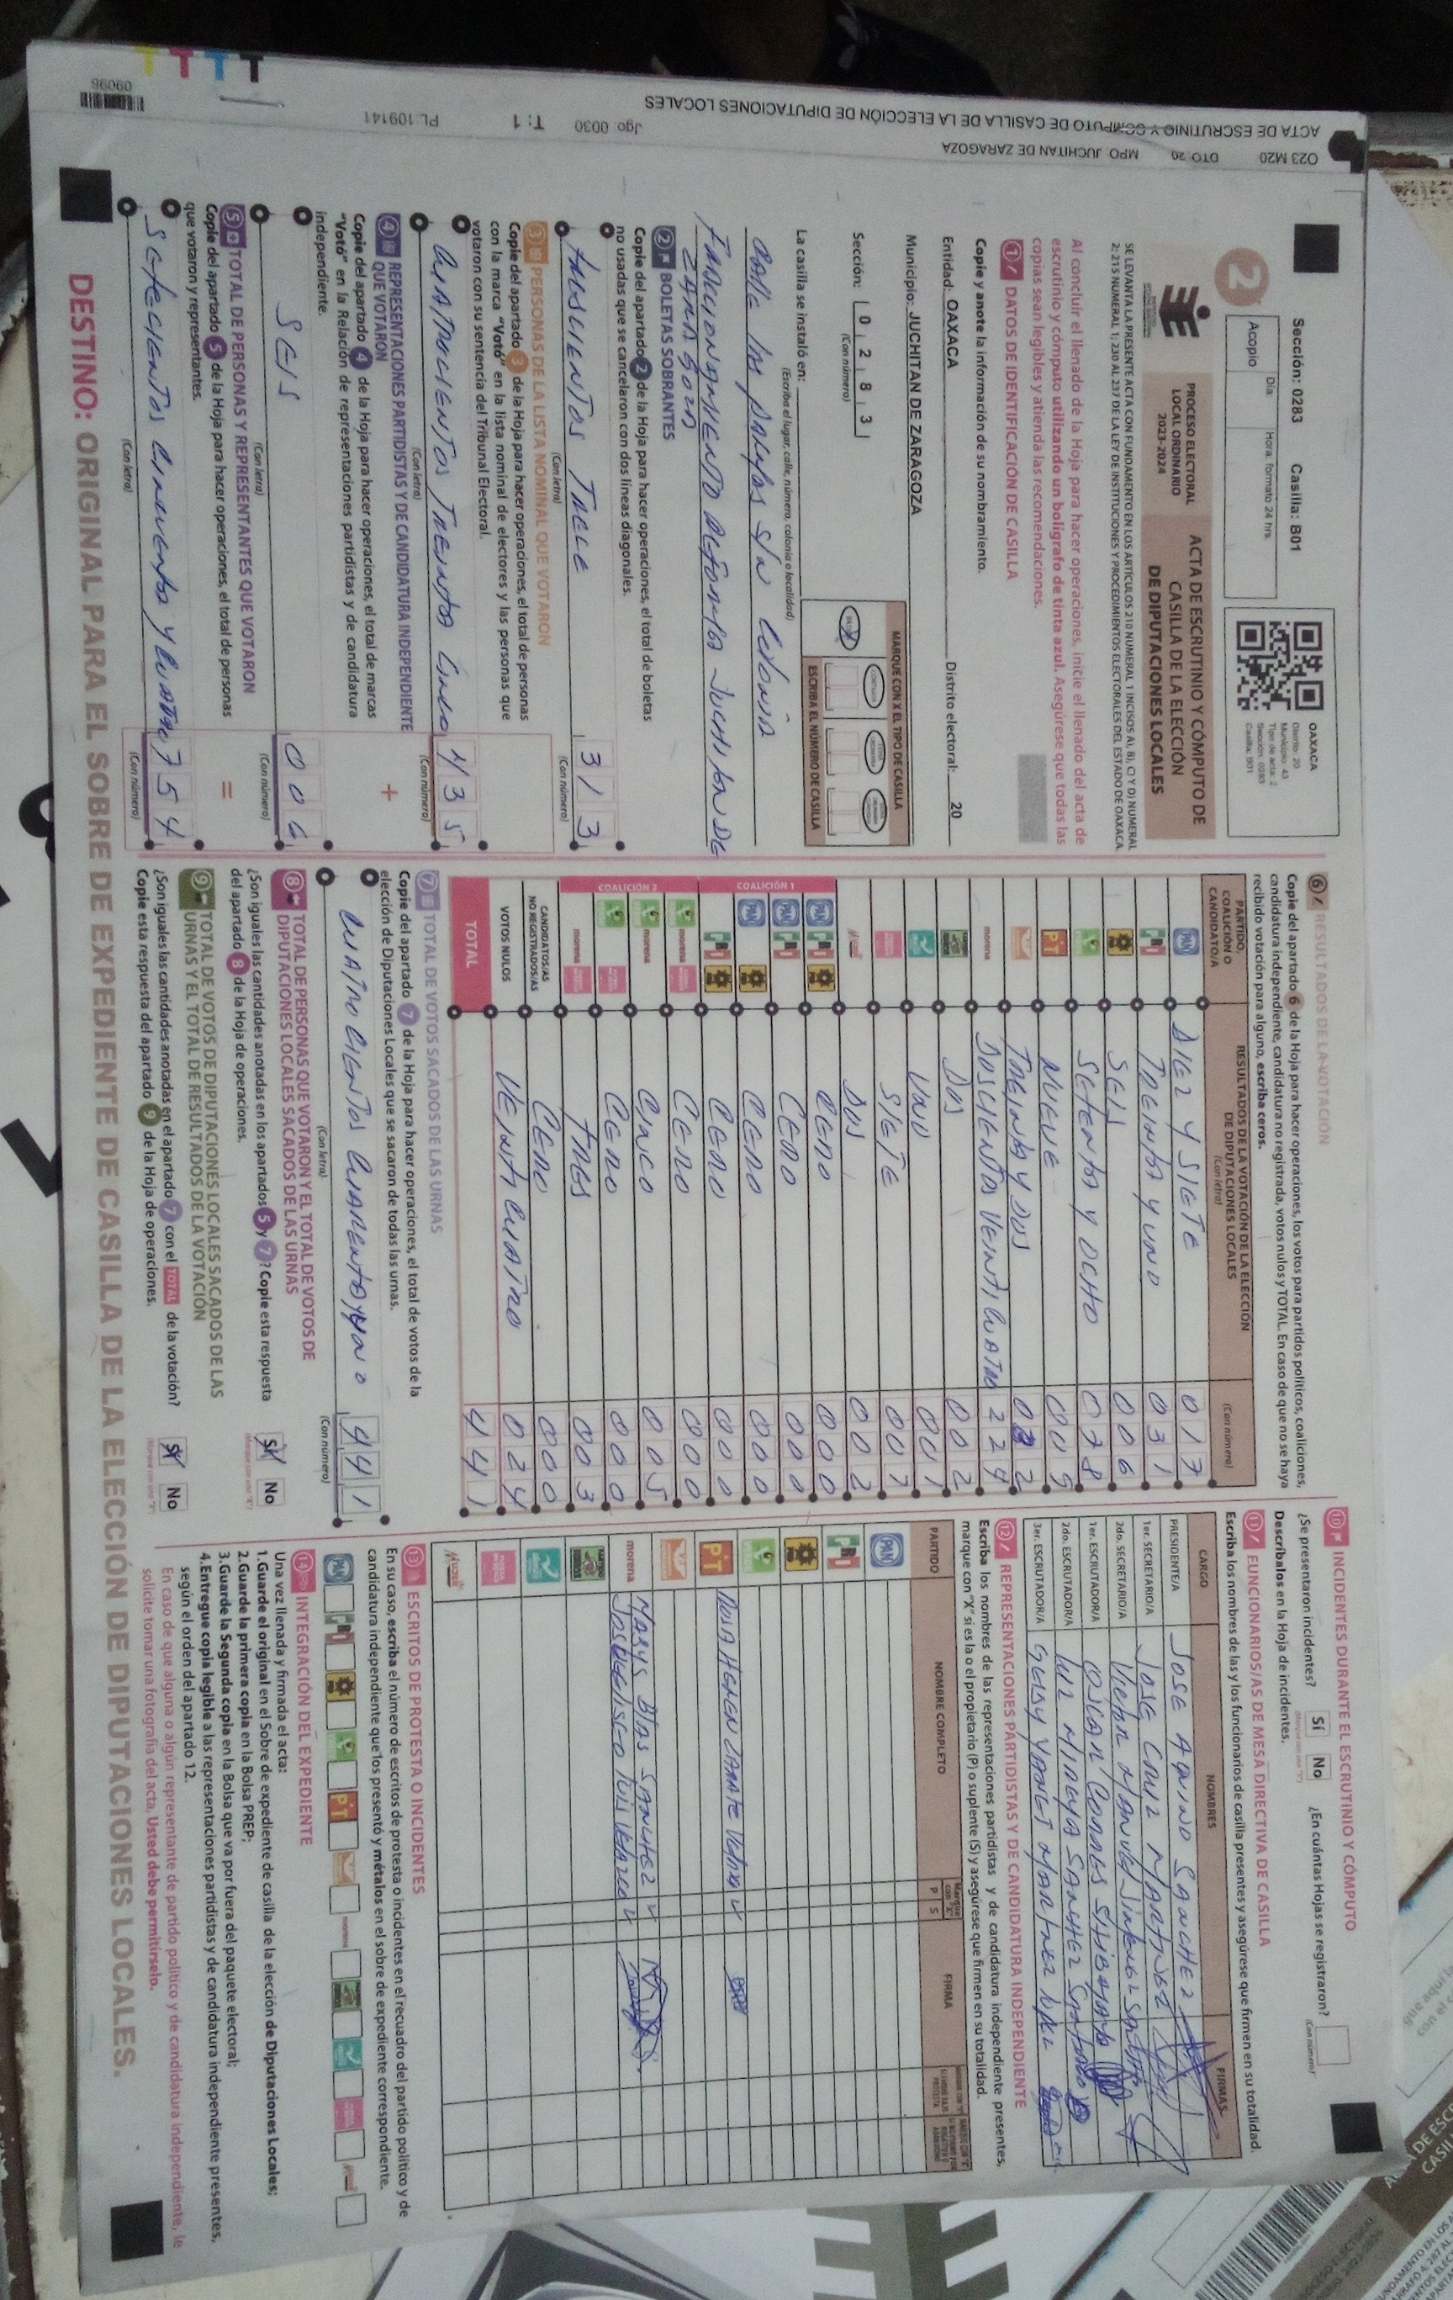 O23 M20 DTO 20 MPO JUCHITAN DE ZARAGOZA
ACTA DE ESCRUTINIO Y COMPUTO DE CASILLA DE LA ELECCIÓN DE DIPUTACIONES LOCALES
Jgo: 0030 T: 1 PL: 109141
09096
Sección: 0283 Casilla: B01
Día: Hora: formato 24 hrs.
Acopio
2
OAXACA
Distrito: 20
Municipio: 43
Tipo de acta: 2
Sección: 0283
Casilla: B01
PROCESO ELECTORAL
LOCAL ORDINARIO
2023-2024
ACTA DE ESCRUTINIO Y CÓMPUTO DE
CASILLA DE LA ELECCIÓN
DE DIPUTACIONES LOCALES
SE LEVANTA LA PRESENTE ACTA CON FUNDAMENTO EN LOS ARTÍCULOS 210 NUMERAL 1 INCISOS A), B), C) Y D) NUMERAL
2; 215 NUMERAL 1; 230 AL 237 DE LA LEY DE INSTITUCIONES Y PROCEDIMIENTOS ELECTORALES DEL ESTADO DE OAXACA.
Al concluir el llenado de la Hoja para hacer operaciones, inicie el llenado del acta de
escrutinio y cómputo utilizando un bolígrafo de tinta azul. Asegúrese que todas las
copias sean legibles y atienda las recomendaciones.
1 DATOS DE IDENTIFICACIÓN DE CASILLA
Copie y anote la información de su nombramiento.
Entidad: OAXACA Distrito electoral: 20
Municipio: JUCHITAN DE ZARAGOZA
Sección: 0 2 8 3
(Con número)
MARQUE CON X EL TIPO DE CASILLA
ESCRIBA EL NÚMERO DE CASILLA
La casilla se instaló en:
(Escriba el lugar, calle, número, colonia o localidad)
2 BOLETAS SOBRANTES
Copie del apartado 2 de la Hoja para hacer operaciones, el total de boletas
no usadas que se cancelaron con dos líneas diagonales.
TRESCIENTOS TRECE 313
(Con letra) (Con número)
3 PERSONAS DE LA LISTA NOMINAL QUE VOTARON
Copie del apartado 3 de la Hoja para hacer operaciones, el total de personas
con la marca "Votó" en la lista nominal de electores y las personas que
votaron con su sentencia del Tribunal Electoral.
CUATROCIENTOS TREINTA CINCO 435
(Con letra) (Con número)
4 REPRESENTACIONES PARTIDISTAS Y DE CANDIDATURA INDEPENDIENTE
QUE VOTARON +
Copie del apartado 4 de la Hoja para hacer operaciones, el total de marcas
"Votó" en la Relación de representaciones partidistas y de candidatura
independiente.
SEIS 006
(Con letra) (Con número)
5 TOTAL DE PERSONAS Y REPRESENTANTES QUE VOTARON =
Copie del apartado 5 de la Hoja para hacer operaciones, el total de personas
que votaron y representantes.
SETECIENTOS CINCUENTA Y CUATRO 754
(Con letra) (Con número)
6 RESULTADOS DE LA VOTACIÓN
Copie del apartado 6 de la Hoja para hacer operaciones, los votos para partidos políticos, coaliciones,
candidatura independiente, candidatura no registrada, votos nulos y TOTAL. En caso de que no se haya
recibido votación para alguno, escriba ceros.
PARTIDO, COALICIÓN O CANDIDATO/A
RESULTADOS DE LA VOTACIÓN DE LA ELECCIÓN DE DIPUTACIONES LOCALES
(Con letra) (Con número)
PAN DIEZ Y SIETE 017
PRI TREINTA Y UNO 031
SEIS 006
SETENTA Y OCHO 078
PT NUEVE 009
TREINTA Y DOS 032
morena DOSCIENTOS VEINTICUATRO 224
DOS 002
UNO 001
SIETE 007
DOS 002
COALICIÓN 1
CERO 000
CERO 000
CERO 000
CERO 000
COALICIÓN 2
CERO 000
CINCO 005
CERO 000
TRES 003
CANDIDATOS/AS NO REGISTRADOS/AS CERO 000
VOTOS NULOS VEINTICUATRO 024
TOTAL 441
7 TOTAL DE VOTOS SACADOS DE LAS URNAS
Copie del apartado 7 de la Hoja para hacer operaciones, el total de votos de la
elección de Diputaciones Locales que se sacaron de todas las urnas.
CUATROCIENTOS CUARENTA Y UNO 441
(Con letra) (Con número)
8 TOTAL DE PERSONAS QUE VOTARON Y EL TOTAL DE VOTOS DE
DIPUTACIONES LOCALES SACADOS DE LAS URNAS
¿Son iguales las cantidades anotadas en los apartados 5 y 7? Copie esta respuesta
del apartado 8 de la Hoja de operaciones. Sí No
9 TOTAL DE VOTOS DE DIPUTACIONES LOCALES SACADOS DE LAS
URNAS Y EL TOTAL DE RESULTADOS DE LA VOTACIÓN
¿Son iguales las cantidades anotadas en el apartado 7 con el TOTAL de la votación?
Copie esta respuesta del apartado 9 de la Hoja de operaciones. Sí No
10 INCIDENTES DURANTE EL ESCRUTINIO Y CÓMPUTO
¿Se presentaron incidentes? Sí No ¿En cuántas Hojas se registraron?
(Con número)
Descríbalos en la Hoja de incidentes.
11 FUNCIONARIOS/AS DE MESA DIRECTIVA DE CASILLA
Escriba los nombres de las y los funcionarios de casilla presentes y asegúrese que firmen en su totalidad.
CARGO NOMBRES FIRMAS
PRESIDENTE/A JOSE AQUINO SANCHEZ
1er. SECRETARIO/A JOSE CRUZ MARTINEZ
2do. SECRETARIO/A
1er. ESCRUTADOR/A
2do. ESCRUTADOR/A
3er. ESCRUTADOR/A
12 REPRESENTACIONES PARTIDISTAS Y DE CANDIDATURA INDEPENDIENTE
Escriba los nombres de las representaciones partidistas y de candidatura independiente presentes,
marque con "X" si es la o el propietario (P) o suplente (S) y asegúrese que firmen en su totalidad.
PARTIDO NOMBRE COMPLETO P S FIRMA
PAN
PRI
PT
morena MARYS BLAS SANCHEZ
13 ESCRITOS DE PROTESTA O INCIDENTES
En su caso, escriba el número de escritos de protesta o incidentes en el recuadro del partido político y de
candidatura independiente que los presentó y métalos en el sobre de expediente correspondiente.
14 INTEGRACIÓN DEL EXPEDIENTE
Una vez llenada y firmada el acta:
1.Guarde el original en el Sobre de expediente de casilla de la elección de Diputaciones Locales;
2.Guarde la primera copia en la Bolsa PREP;
3.Guarde la Segunda copia en la Bolsa que va por fuera del paquete electoral;
4.Entregue copia legible a las representaciones partidistas y de candidatura independiente presentes,
según el orden del apartado 12.
En caso de que alguna o algún representante de partido político y de candidatura independiente, le
solicite tomar una fotografía del acta, Usted debe permitírselo.
DESTINO: ORIGINAL PARA EL SOBRE DE EXPEDIENTE DE CASILLA DE LA ELECCIÓN DE DIPUTACIONES LOCALES.